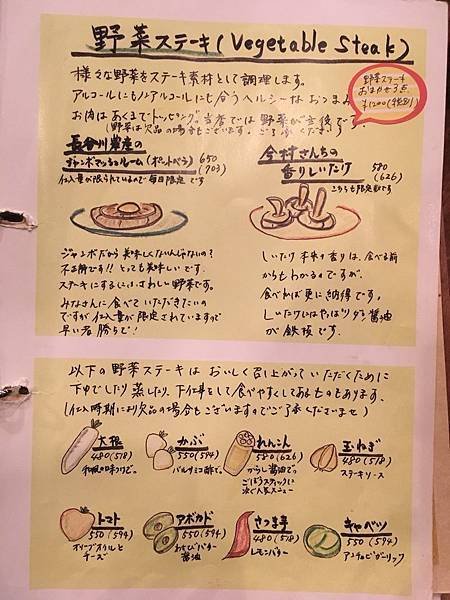 野菜ステーキ(Vegetable Steak)
様々な野菜をステーキ素材として調理します。
アルコールにもノンアルコールにも合うヘルシーなおつまみ
お肉はあくまでトッピング。当店では野菜が主役です。
(野菜は欠品の場合もございます。ご了承ください)
野菜ステーキ
おまかせ3点
¥1200(税別)
長谷川農産の
ジャンボマッシュルーム(ポットベラ) 650
(703)
仕入量が限られているので毎日限定です
今村さんちの
香りしいたけ 580
(626)
こちらも限定数です
ジャンボだから美味しくないんじゃないの?
不正解です!! とっても美味しいです。
ステーキにするにはふさわしい野菜です。
みなさんに食べていただきたいの
ですが仕入量が限定されていますので
早い者勝ちで!
しいたけ本来の香りは、食べる前
からもわかるのですが、
食べれば更に納得です。
しいたけにはやっぱりゆず醤油
が鉄板です。
以下の野菜ステーキはおいしく召し上がっていただくために
下ゆでしたり蒸したり、下仕事をして食べやすくしてあるものもあります。
(仕入時期により欠品の場合もございますのでご了承くださいませ)
大根
480(518)
和風の味つけで。
かぶ
550(594)
バルサミコ酢で。
れんこん
580(626)
からし醤油で。
ごぼうスティックに
次ぐ人気メニュー
玉ねぎ
480(518)
ステーキソース
トマト
550(594)
オリーブオイルと
チーズ
アボカド
550(594)
わさびバター
醤油
さつま芋
480(518)
レモンバター
キャベツ
550(594)
アンチョビガーリック